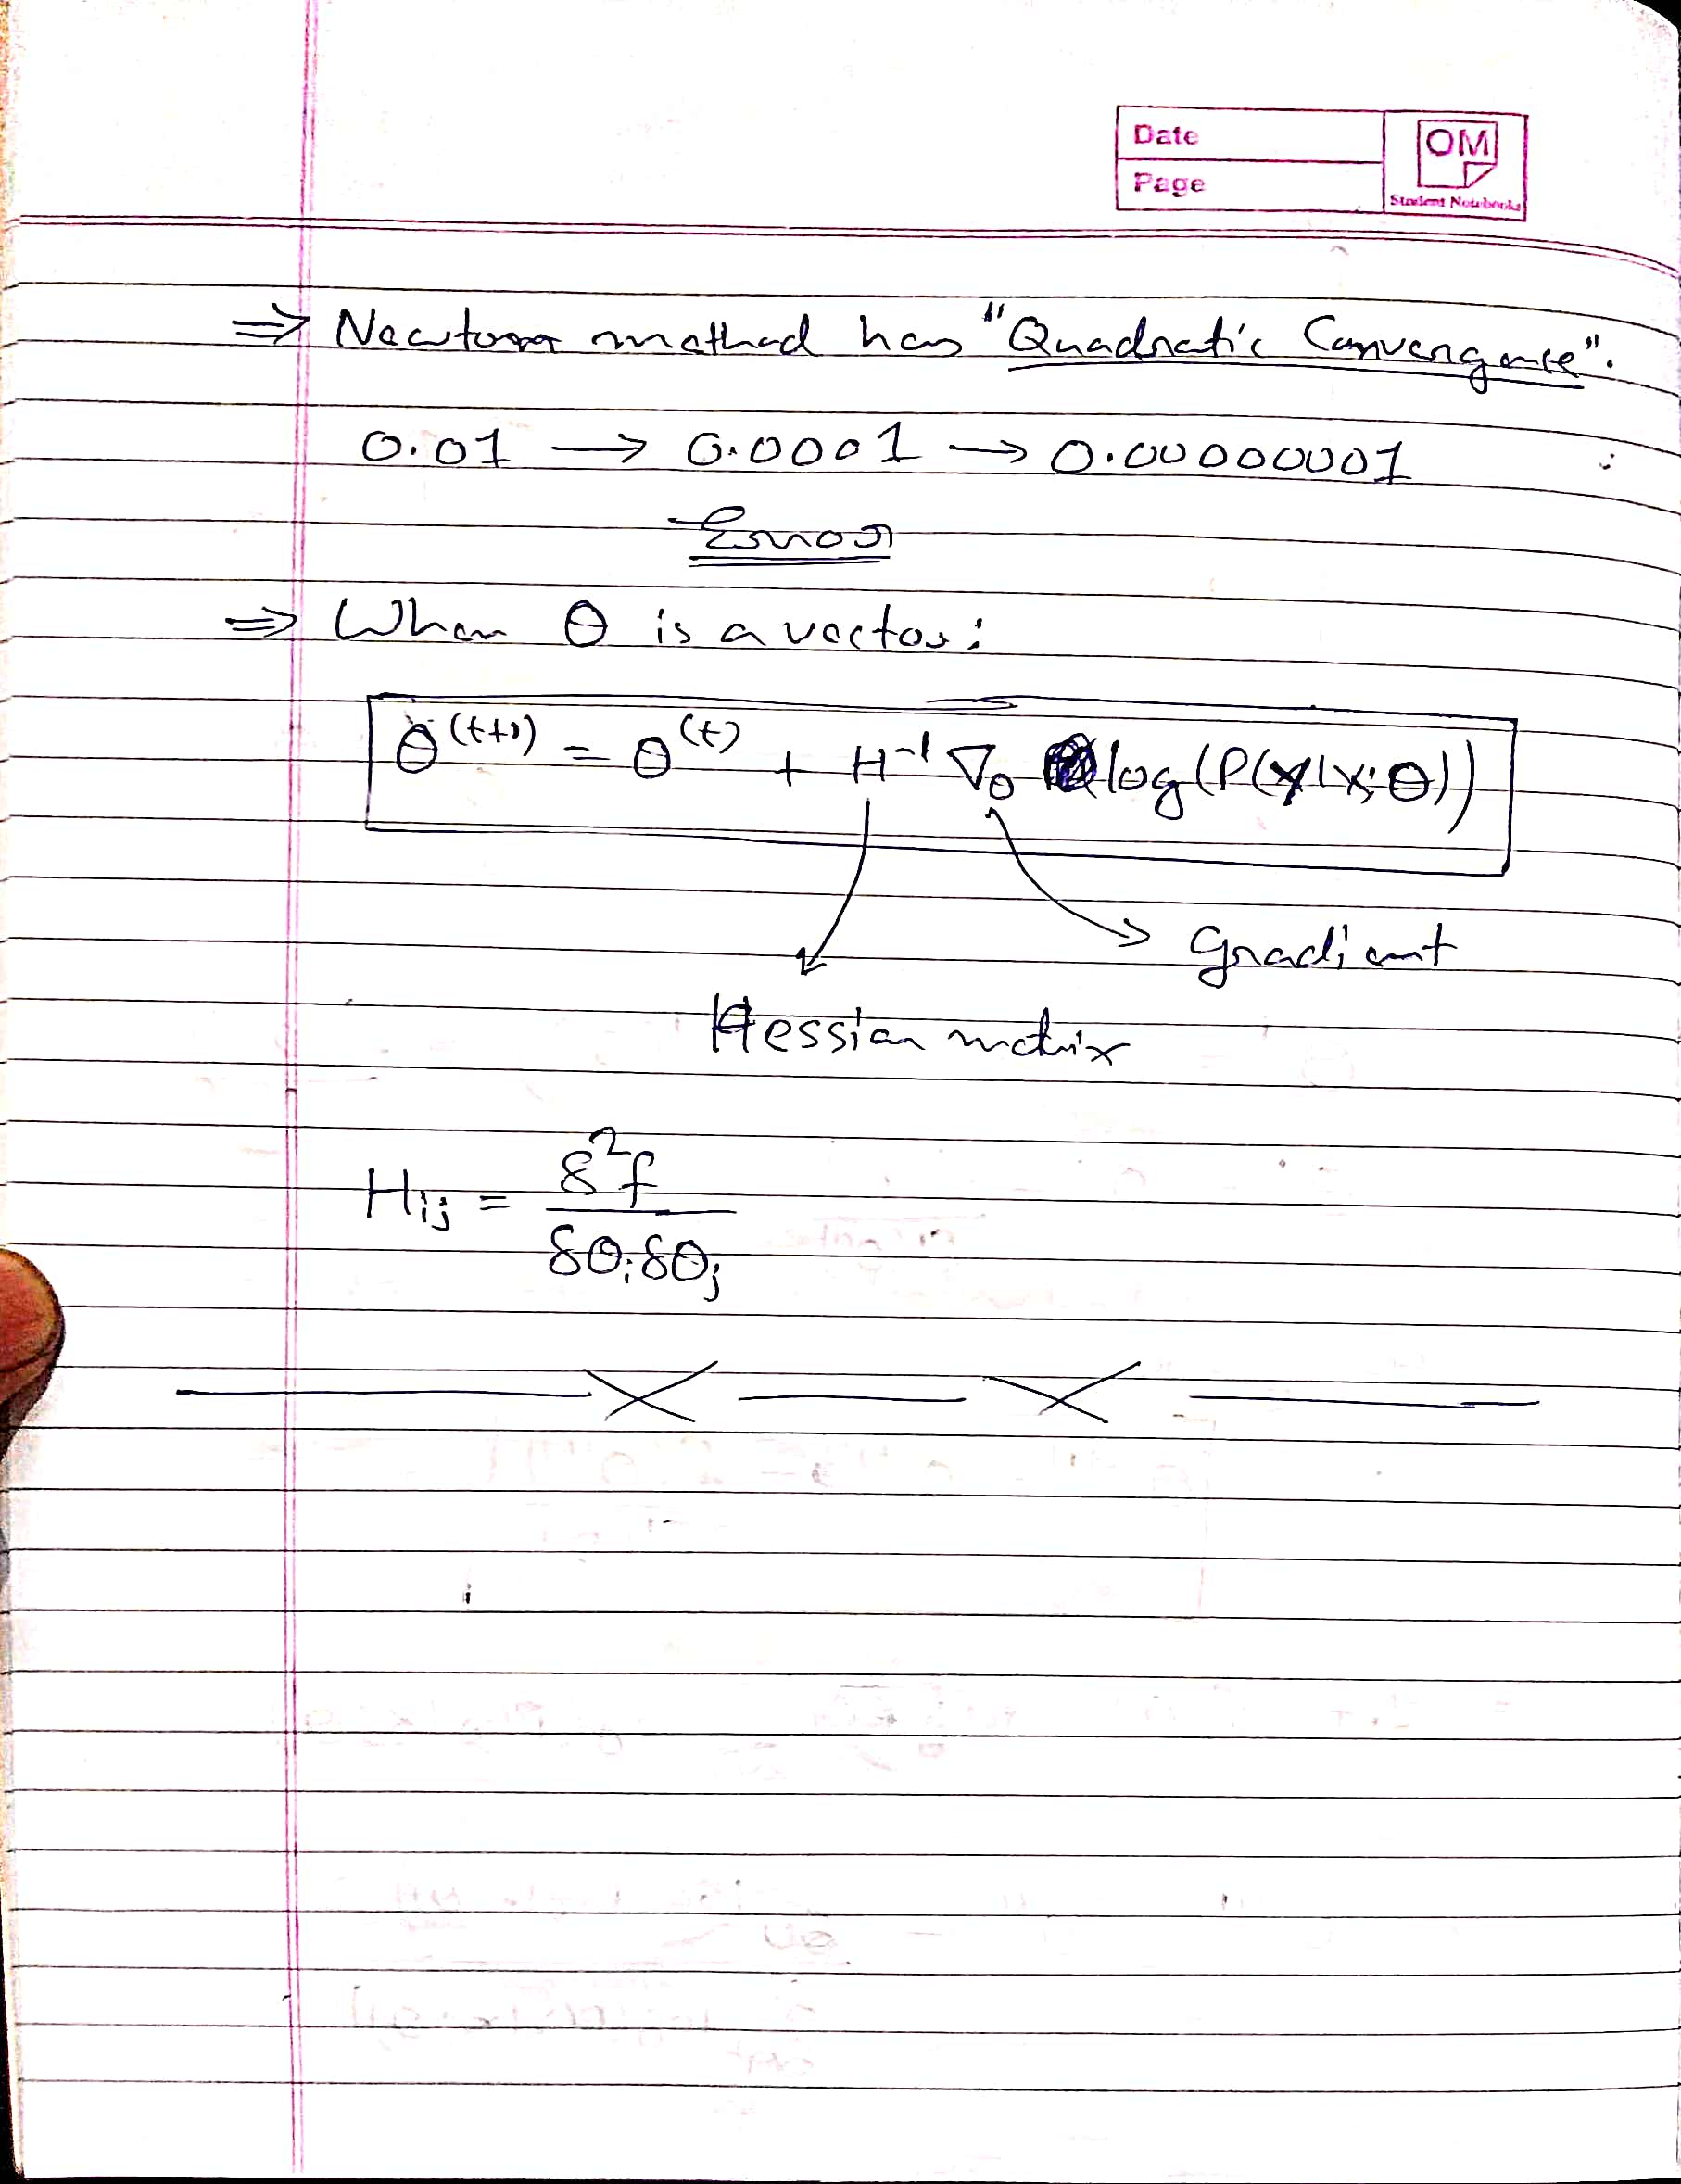 Date
Page
OM
Student Notebooks
⇒ Newton method has "Quadratic Convergence".
0.01 → 0.0001 → 0.00000001
Error
⇒ When θ is a vector:
θ^(t+1) = θ^(t) + H^-1 ∇_θ log(P(Y|X;θ))
Gradient
Hessian matrix
H_ij = δ²f / δθ_i δθ_j